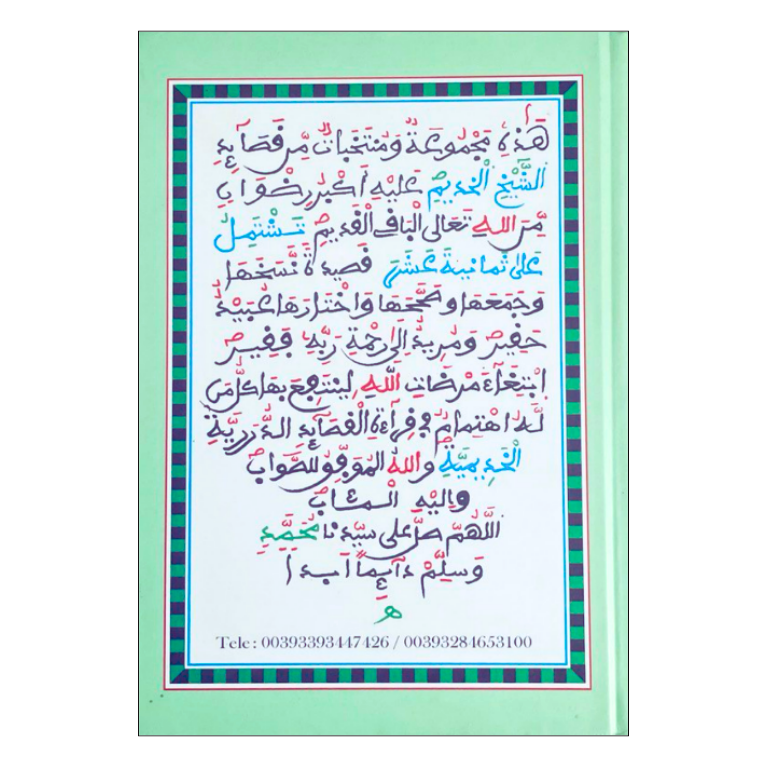 هَذِهِ مَجْمُوعَةٌ وَمُنْتَخَبَاتٌ مِّن قَصَآئِدِ
الشَّيْخِ الْخَدِيمِ عَلَيْهِ أَكْبَرُ رِضْوَانٍ
مِّنَ اللهِ تَعَالَى الْبَاقِي الْقَدِيمِ تَشْتَمِلُ
عَلَى ثَمَانِيَةَ عَشَرَ قَصِيدَةً نَّسَخَهَا
وَجَمَعَهَا وَصَحَّحَهَا وَاخْتَارَهَا عُبَيْدٌ
حَقِيرٌ وَمُرِيدٌ إِلَى رَحْمَةِ رَبِّهِ فَقِيرٌ
ابْتِغَآءَ مَرْضَاتِ اللهِ لِيَنتَفِعَ بِهَا كُلُّ مَن
لَهُ اهْتِمَامٌ فِي قِرَآءَةِ الْقَصَآئِدِ الدُّرَرِيَّةِ
الْخَدِيمِيَّةِ وَاللهُ الْمُوَفِّقُ لِلصَّوَابِ
وَإِلَيْهِ الْمَئَابُ
اللَّهُمَّ صَلِّ عَلَى سَيِّدِنَا مُحَمَّدٍ
وَسَلِّمْ دَآئِمًا أَبَدًا
هـ
Tele : 00393393447426 / 00393284653100